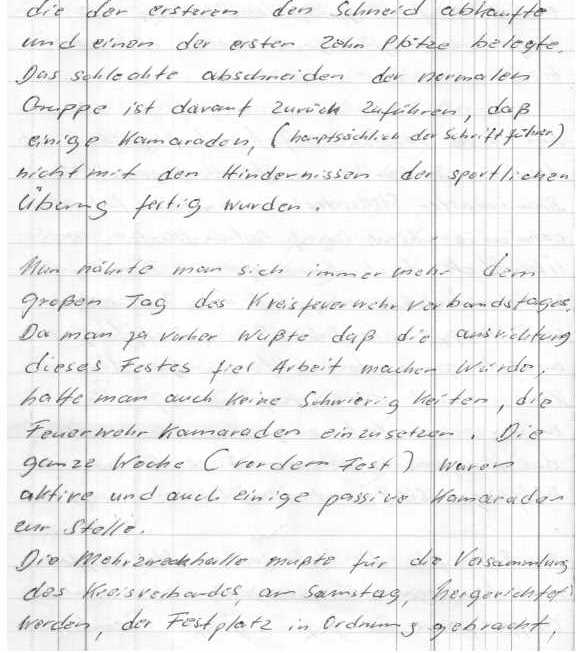 die der ersteren den Schneid abkaufte
und einen der ersten Zehn Plätze belegte.
Das schlechte abschneiden der normalen
Gruppe ist darauf zurück zuführen, daß
einige Kamaraden, (hauptsächlich der Schriftführer)
nicht mit den Hindernissen der sportlichen
Übung fertig wurden.
Nun nährte man sich immer mehr dem
großen Tag des Kreisfeuerwehrverbandstages.
Da man ja vorher wußte daß die ausrichtung
dieses Festes fiel Arbeit machen würde,
hatte man auch keine Schwierig keiten, die
Feuerwehr Kamaraden einzusetzen. Die
ganze Woche (vor dem Fest) waren
aktive und auch einige passive Kamaraden
zur Stelle.
Die Mehrzweckhalle mußte für die Versammlung
des Kreisverbandes, am Samstag, hergerichtet
werden, der Festplatz in Ordnung gebracht,